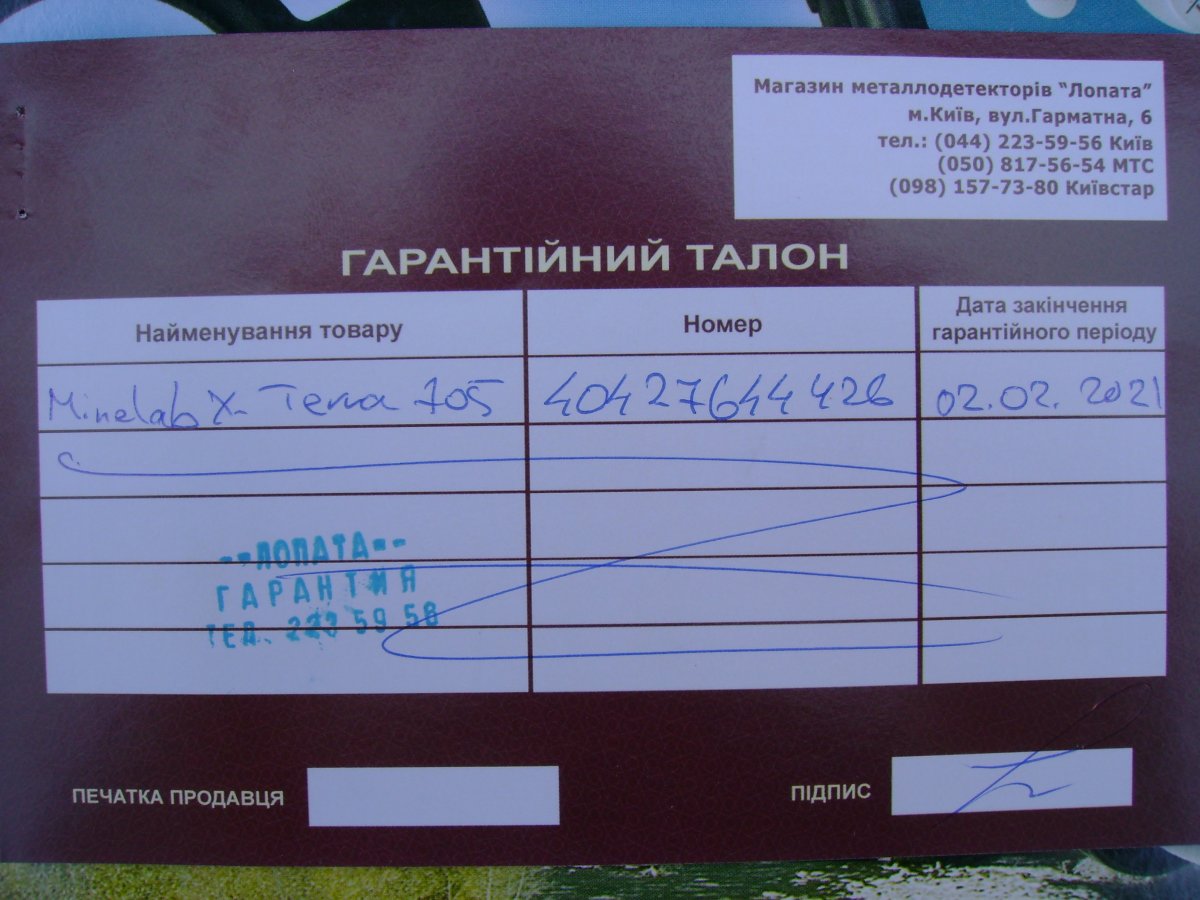 Магазин металлодетекторів “Лопата”
м.Київ, вул.Гарматна, 6
тел.: (044) 223-59-56 Київ
(050) 817-56-54 МТС
(098) 157-73-80 Київстар
ГАРАНТІЙНИЙ ТАЛОН
Найменування товару
Номер
Дата закінчення
гарантійного періоду
Minelab X-Terra 705
40427644426
02.02.2021
--ЛОПАТА--
ГАРАНТИЯ
ТЕЛ. 223 59 56
ПЕЧАТКА ПРОДАВЦЯ
ПІДПИС